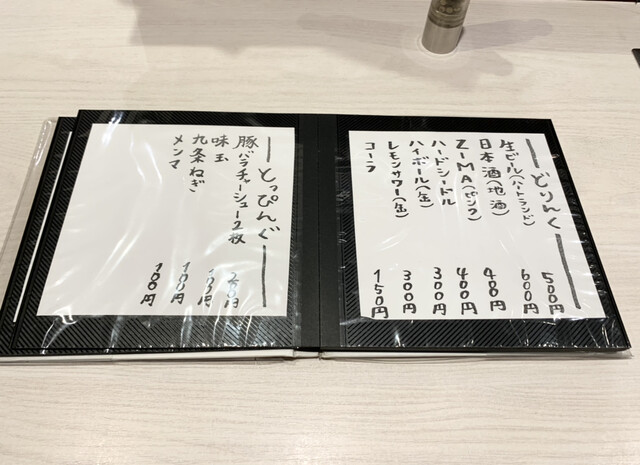 どりんく
生ビール(ハートランド) 500円
日本酒(地酒) 600円
ZIMA(ピンク) 円
ハードシードル 400円
ハイボール(缶) 300円
レモンサワー(缶) 300円
コーラ 150円
とっぴんぐ
豚バラチャーシュー2枚 円
味玉 円
九条ねぎ 100円
メンマ 100円